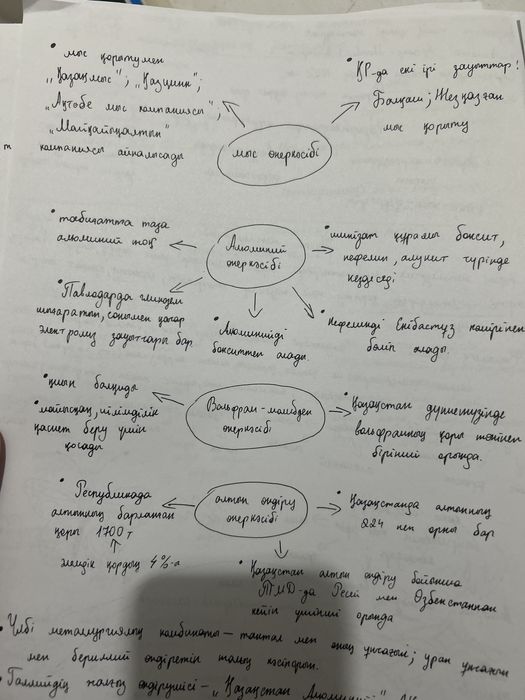 • мыс қорытумен
„Қазақмыс"; „Қазцинк";
„Ақтөбе мыс компаниясы";
„Майқайыңалтын"
компаниясы айналысады
• ҚР-да екі ірі зауыттар!
Балқаш; Жезқазған
мыс қорыту
мыс өнеркәсібі
• табиғатта таза
алюминий жоқ
Алюминий
өнеркәсібі
• шикізат құрамы боксит,
нефелин, алунит түрінде
кездеседі
• Павлодарда глинозем
шығаратын, сонымен қатар
электролиз зауыттары бар.
• Алюминийді
бокситтен алады.
• Нефелинді Екібастұз көмірінен
бөліп алады.
• қиын балқиды
• майысқақ, иілімділік
қасиет беру үшін
қосады
Вольфрам-молибден
өнеркәсібі
Қазақстан дүниежүзінде
вольфрамның қоры жөнінен
бірінші орында.
• Республикада
алтынның барланған
қоры 1700 т
әлемдік қордың 4%-а
алтын өндіру
өнеркәсібі
• Қазақстанда алтынның
224 кен орны бар
• Қазақстан алтын өндіру бойынша
ТМД-да Ресей мен Өзбекстаннан
кейін үшінші орында
• Үлбі металлургиялық комбинаты – тантал мен оның ұнтағын; уран ұнтағын
мен бериллий өндіретін жалғыз кәсіпорын.
• Галлийдің жалғыз өндірушісі – „Қазақстан Алюминий"